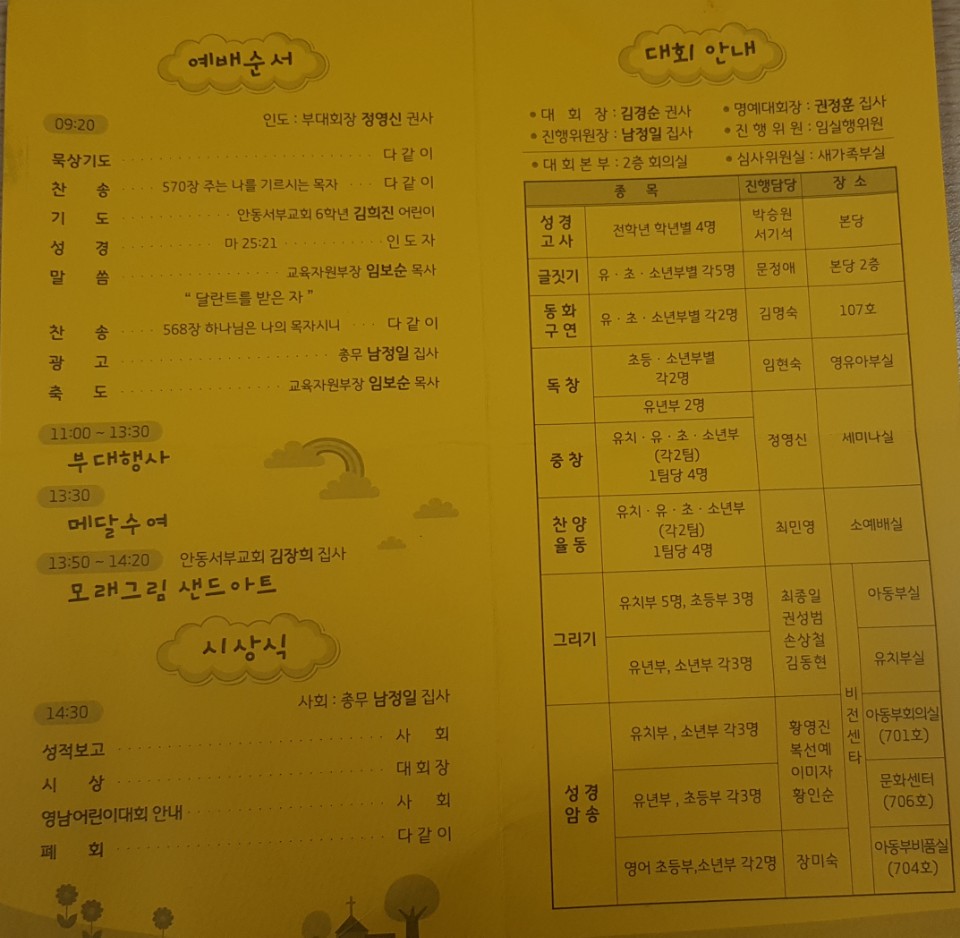 예배순서
09:20 인도 : 부대회장 정영신 권사
묵상기도 다 같 이
찬 송 570장 주는 나를 기르시는 목자 다 같 이
기 도 안동서부교회 6학년 김희진 어린이
성 경 마 25:21 인 도 자
말 씀 교육자원부장 임보순 목사
“ 달란트를 받은 자 ”
찬 송 568장 하나님은 나의 목자시니 다 같 이
광 고 총무 남정일 집사
축 도 교육자원부장 임보순 목사
11:00 ~ 13:30
부대행사
13:30
메달수여
13:50 ~ 14:20 안동서부교회 김장희 집사
모래그림 샌드아트
시상식
14:30 사회 : 총무 남정일 집사
성적보고 사 회
시 상 대 회 장
영남어린이대회 안내 사 회
폐 회 다 같 이
대회 안내
• 대 회 장 : 김경순 권사 • 명예대회장 : 권정훈 집사
• 진행위원장 : 남정일 집사 • 진 행 위 원 : 임실행위원
• 대 회 본 부 : 2층 회의실 • 심사위원실 : 새가족부실
종 목 진행담당 장 소
성 경
고 사
전학년 학년별 4명
박승원
서기석
본당
글짓기 유 · 초 · 소년부별 각5명 문정애 본당 2층
동 화
구 연
유 · 초 · 소년부별 각2명 김명숙 107호
독 창
초등 · 소년부별
각2명
임현숙 영유아부실
유년부 2명
중 창
유치 · 유 · 초 · 소년부
(각2팀)
1팀당 4명
정영신 세미나실
찬 양
율 동
유치 · 유 · 초 · 소년부
(각2팀)
1팀당 4명
최민영 소예배실
그리기
유치부 5명, 초등부 3명
유년부, 소년부 각3명
최종일
권성범
손상철
김동현
비
전
센
타
아동부실
유치부실
성 경
암 송
유치부 , 소년부 각3명
유년부 , 초등부 각3명
황영진
복선예
이미자
황인순
아동부회의실
(701호)
문화센터
(706호)
영어 초등부,소년부 각2명 장미숙
아동부비품실
(704호)